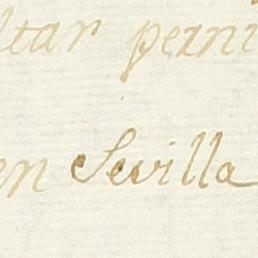 ltar perni
en Sevilla